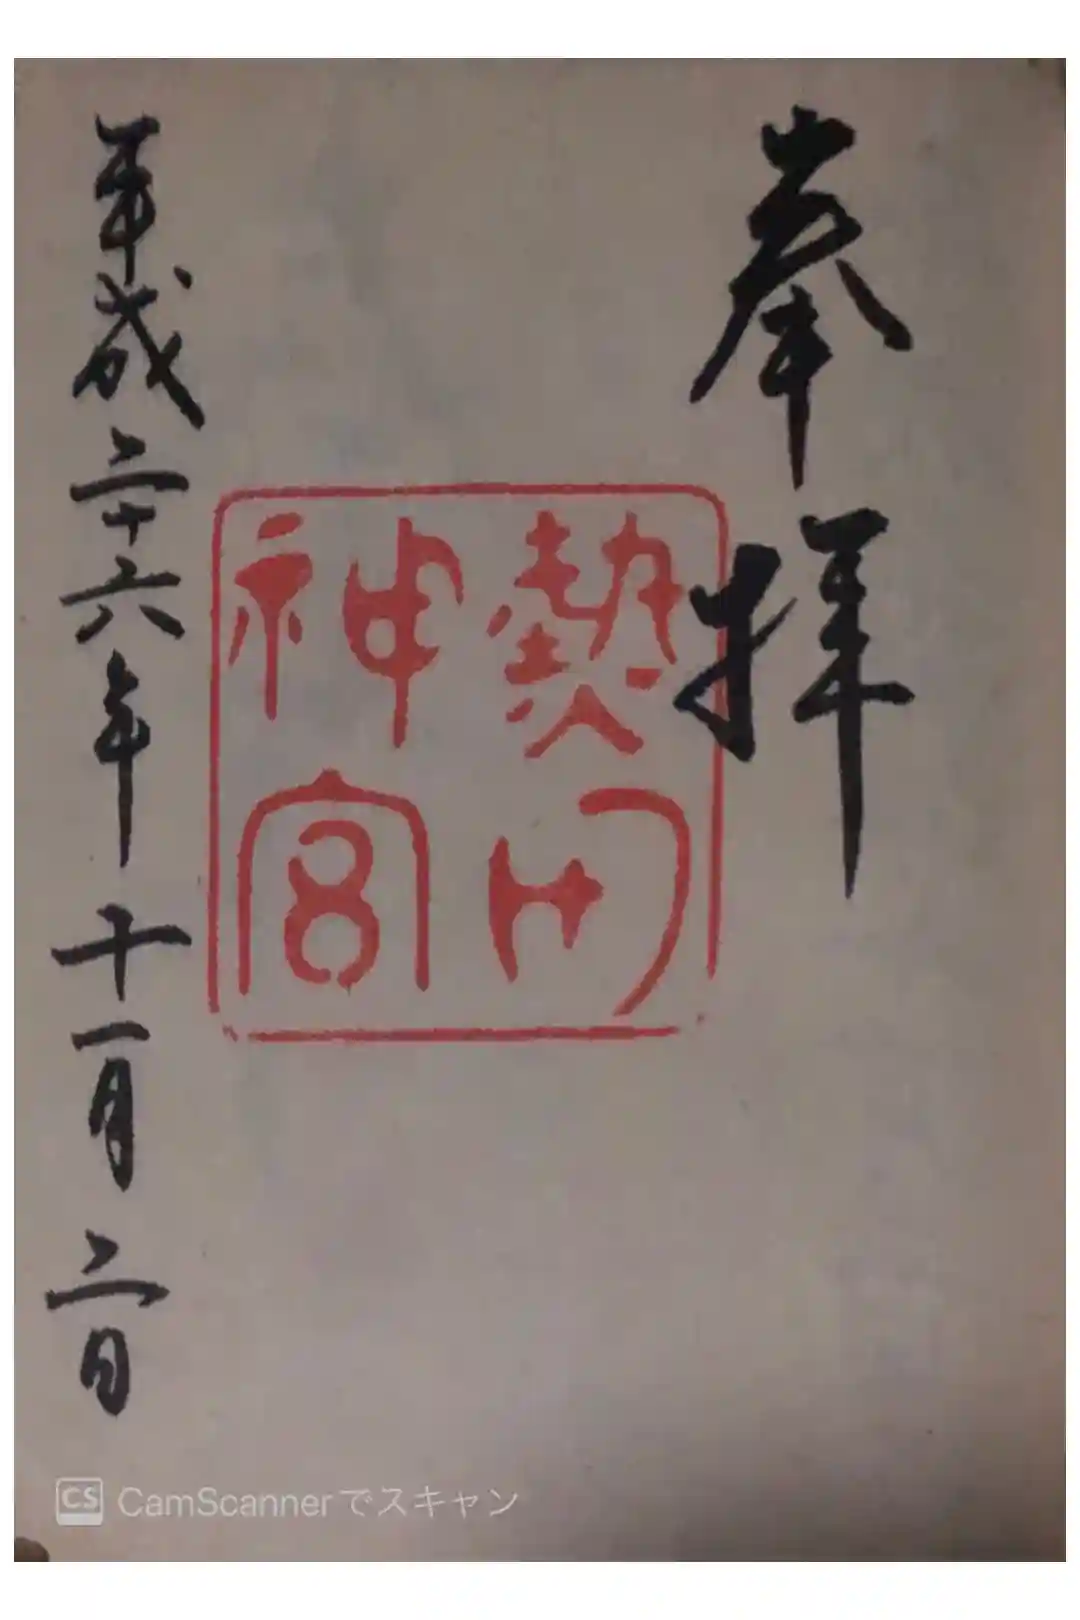 奉拝
熱田
神宮
平成二十六年十一月二日
CS CamScannerでスキャン